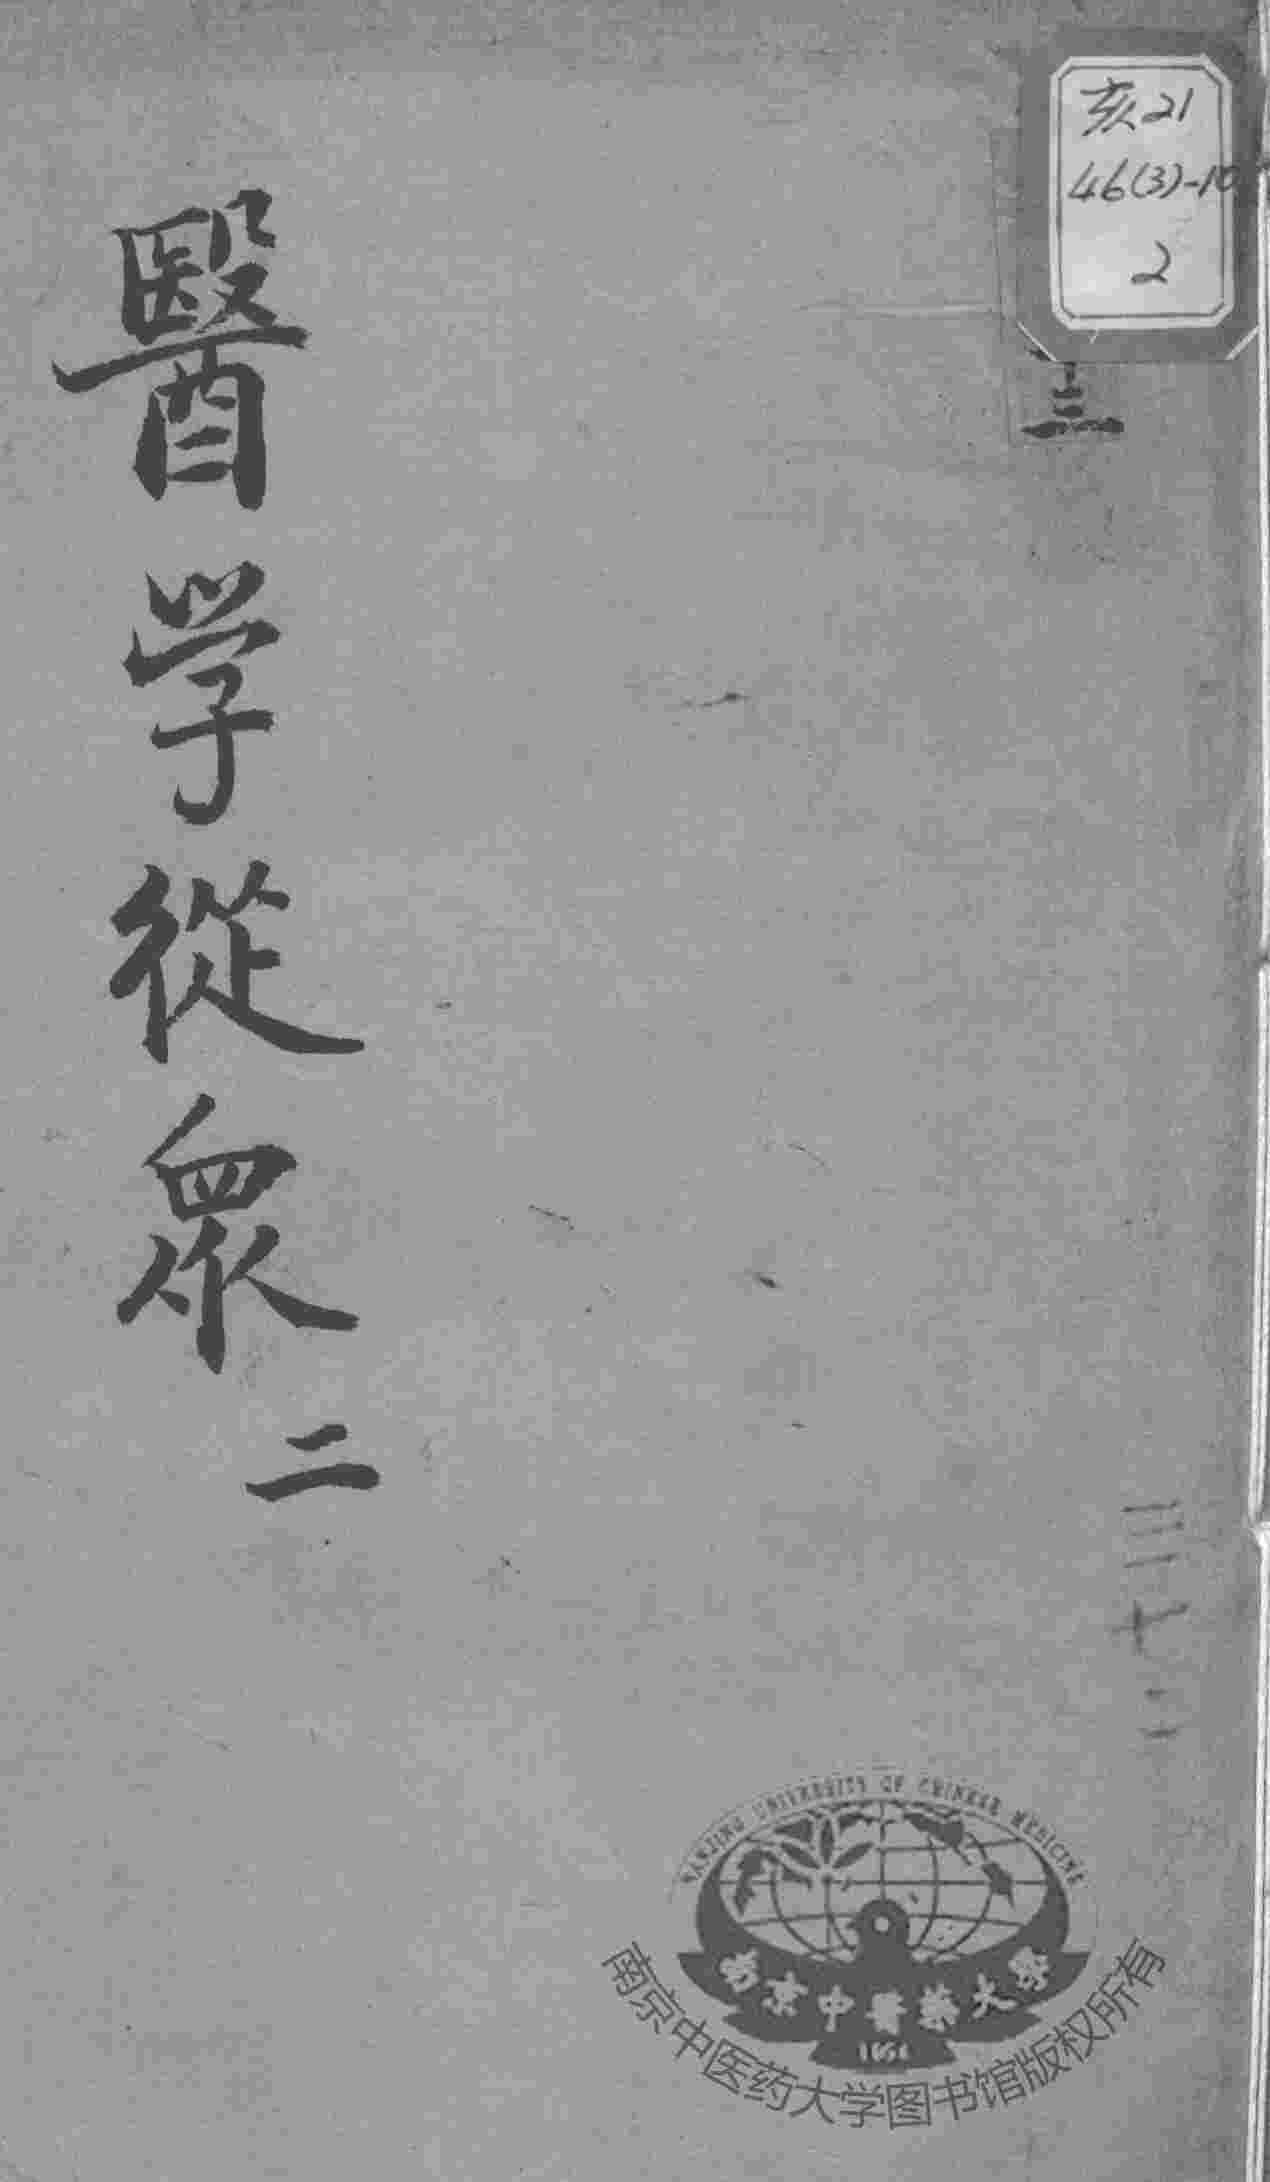 亥21
46(3)-10
2
三
醫学從眾
二
三一七二
NANJING UNIVERSITY OF CHINESE MEDICINE
南京中醫藥大學
1954
南京中医药大学图书馆版权所有